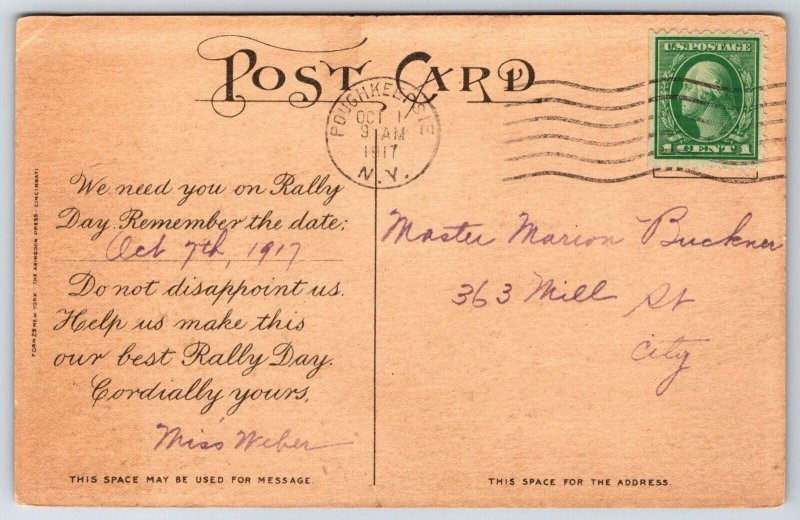 POST CARD
U.S. POSTAGE
1 CENT 1
POUGHKEEPSIE
OCT 1
9 AM
1917
N.Y.
We need you on Rally
Day. Remember the date:
Oct 7th, 1917
Do not disappoint us.
Help us make this
our best Rally Day.
Cordially yours,
Miss Weber
THIS SPACE MAY BE USED FOR MESSAGE.
Master Marion Buckner
363 Mill St
City
THIS SPACE FOR THE ADDRESS.
FORM 29 NEW YORK THE ABINGDON PRESS CINCINNATI